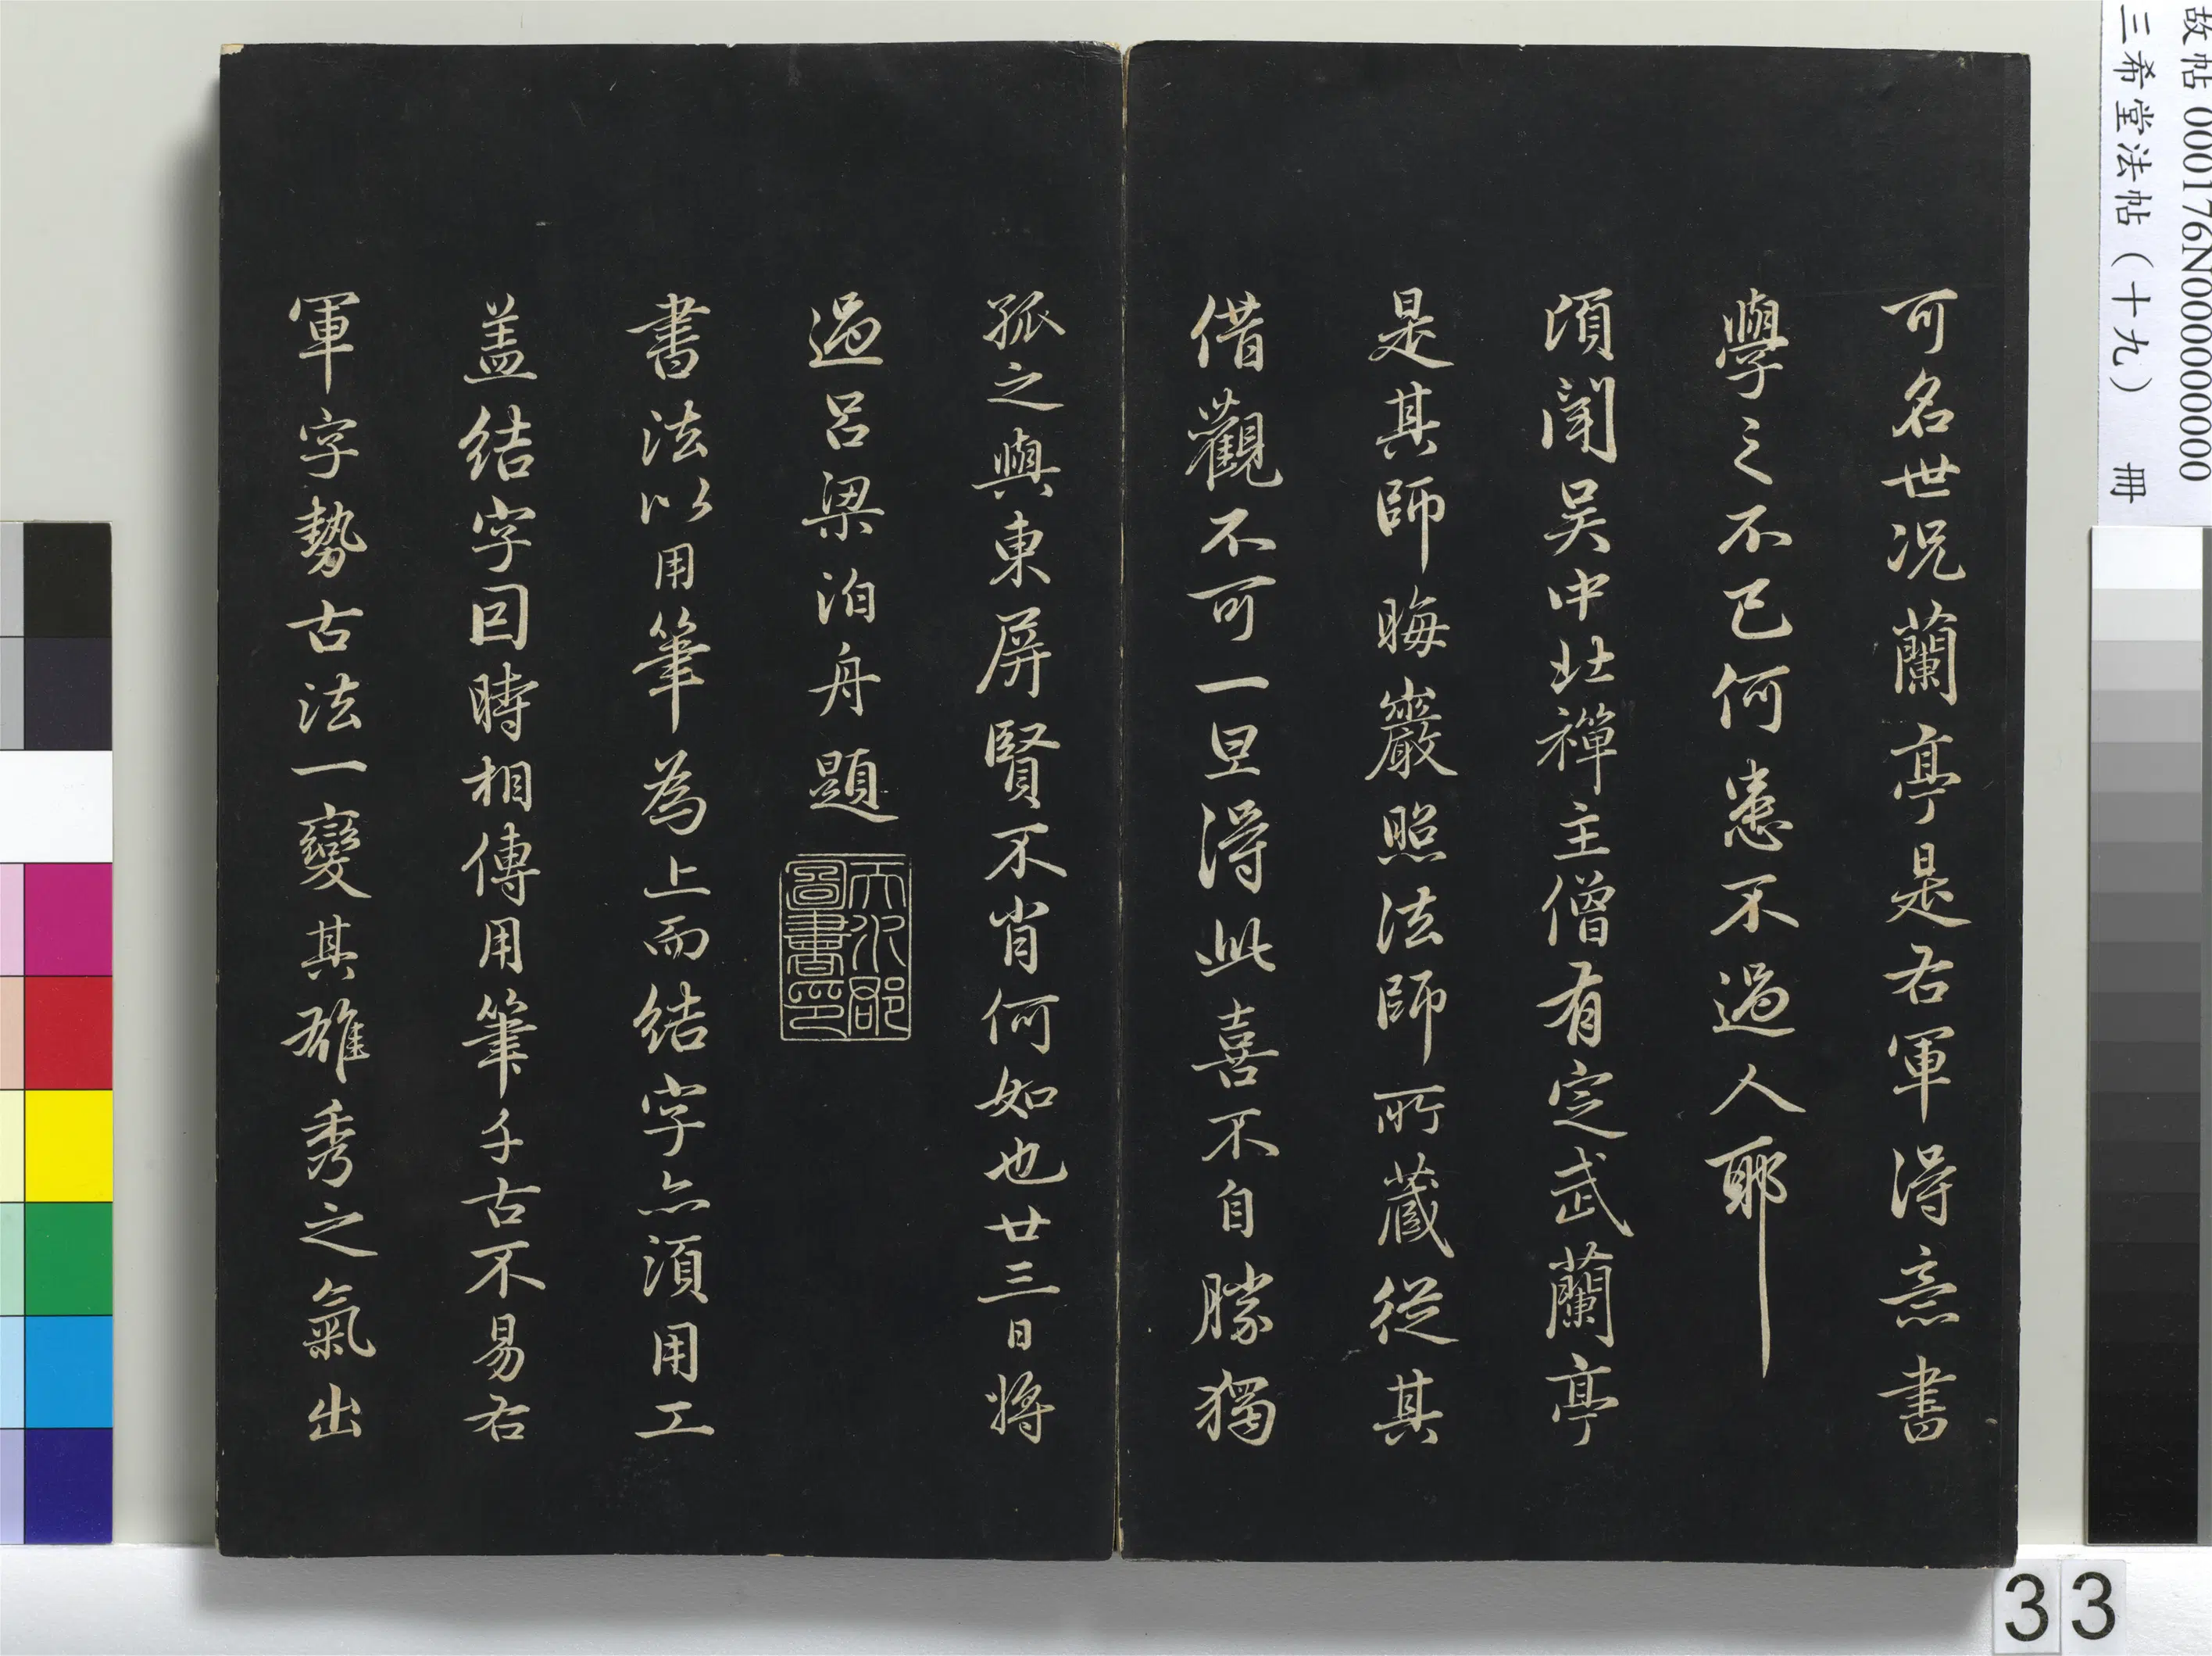 故帖 000176N000000000
三希堂法帖（十九） 冊
可名世况蘭亭是右軍得意書
學之不已何患不過人耶
頃聞吴中北禪主僧有定武蘭亭
是其師晦巖照法師所藏從其
借觀不可一旦得此喜不自勝獨
孤之與東屏賢不肖何如也廿三日將
過呂梁泊舟題
天水郡
圖書印
書法以用筆為上而結字亦須用工
盖結字因時相傳用筆千古不易右
軍字勢古法一變其雄秀之氣出
33